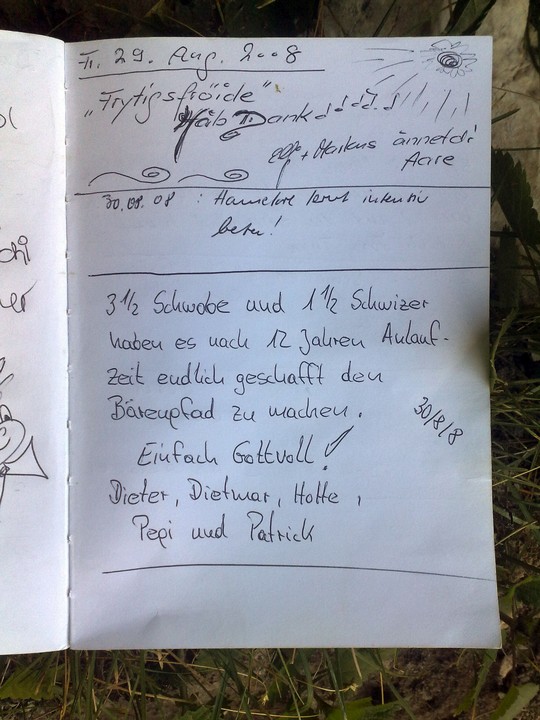 Fr. 29. Aug. 2008
„Frytigsfröide"
Häb Dank
+ Markus ännet dr
Aare
30.08.08 : Hannelore lernt intensiv
beten!
3 1/2 Schwobe und 1 1/2 Schwizer
haben es nach 12 Jahren Anlauf-
zeit endlich geschafft den
Bärenpfad zu machen.
30/8/8
Einfach Gottvoll!
Dieter, Dietmar, Hotte,
Pepi und Patrick